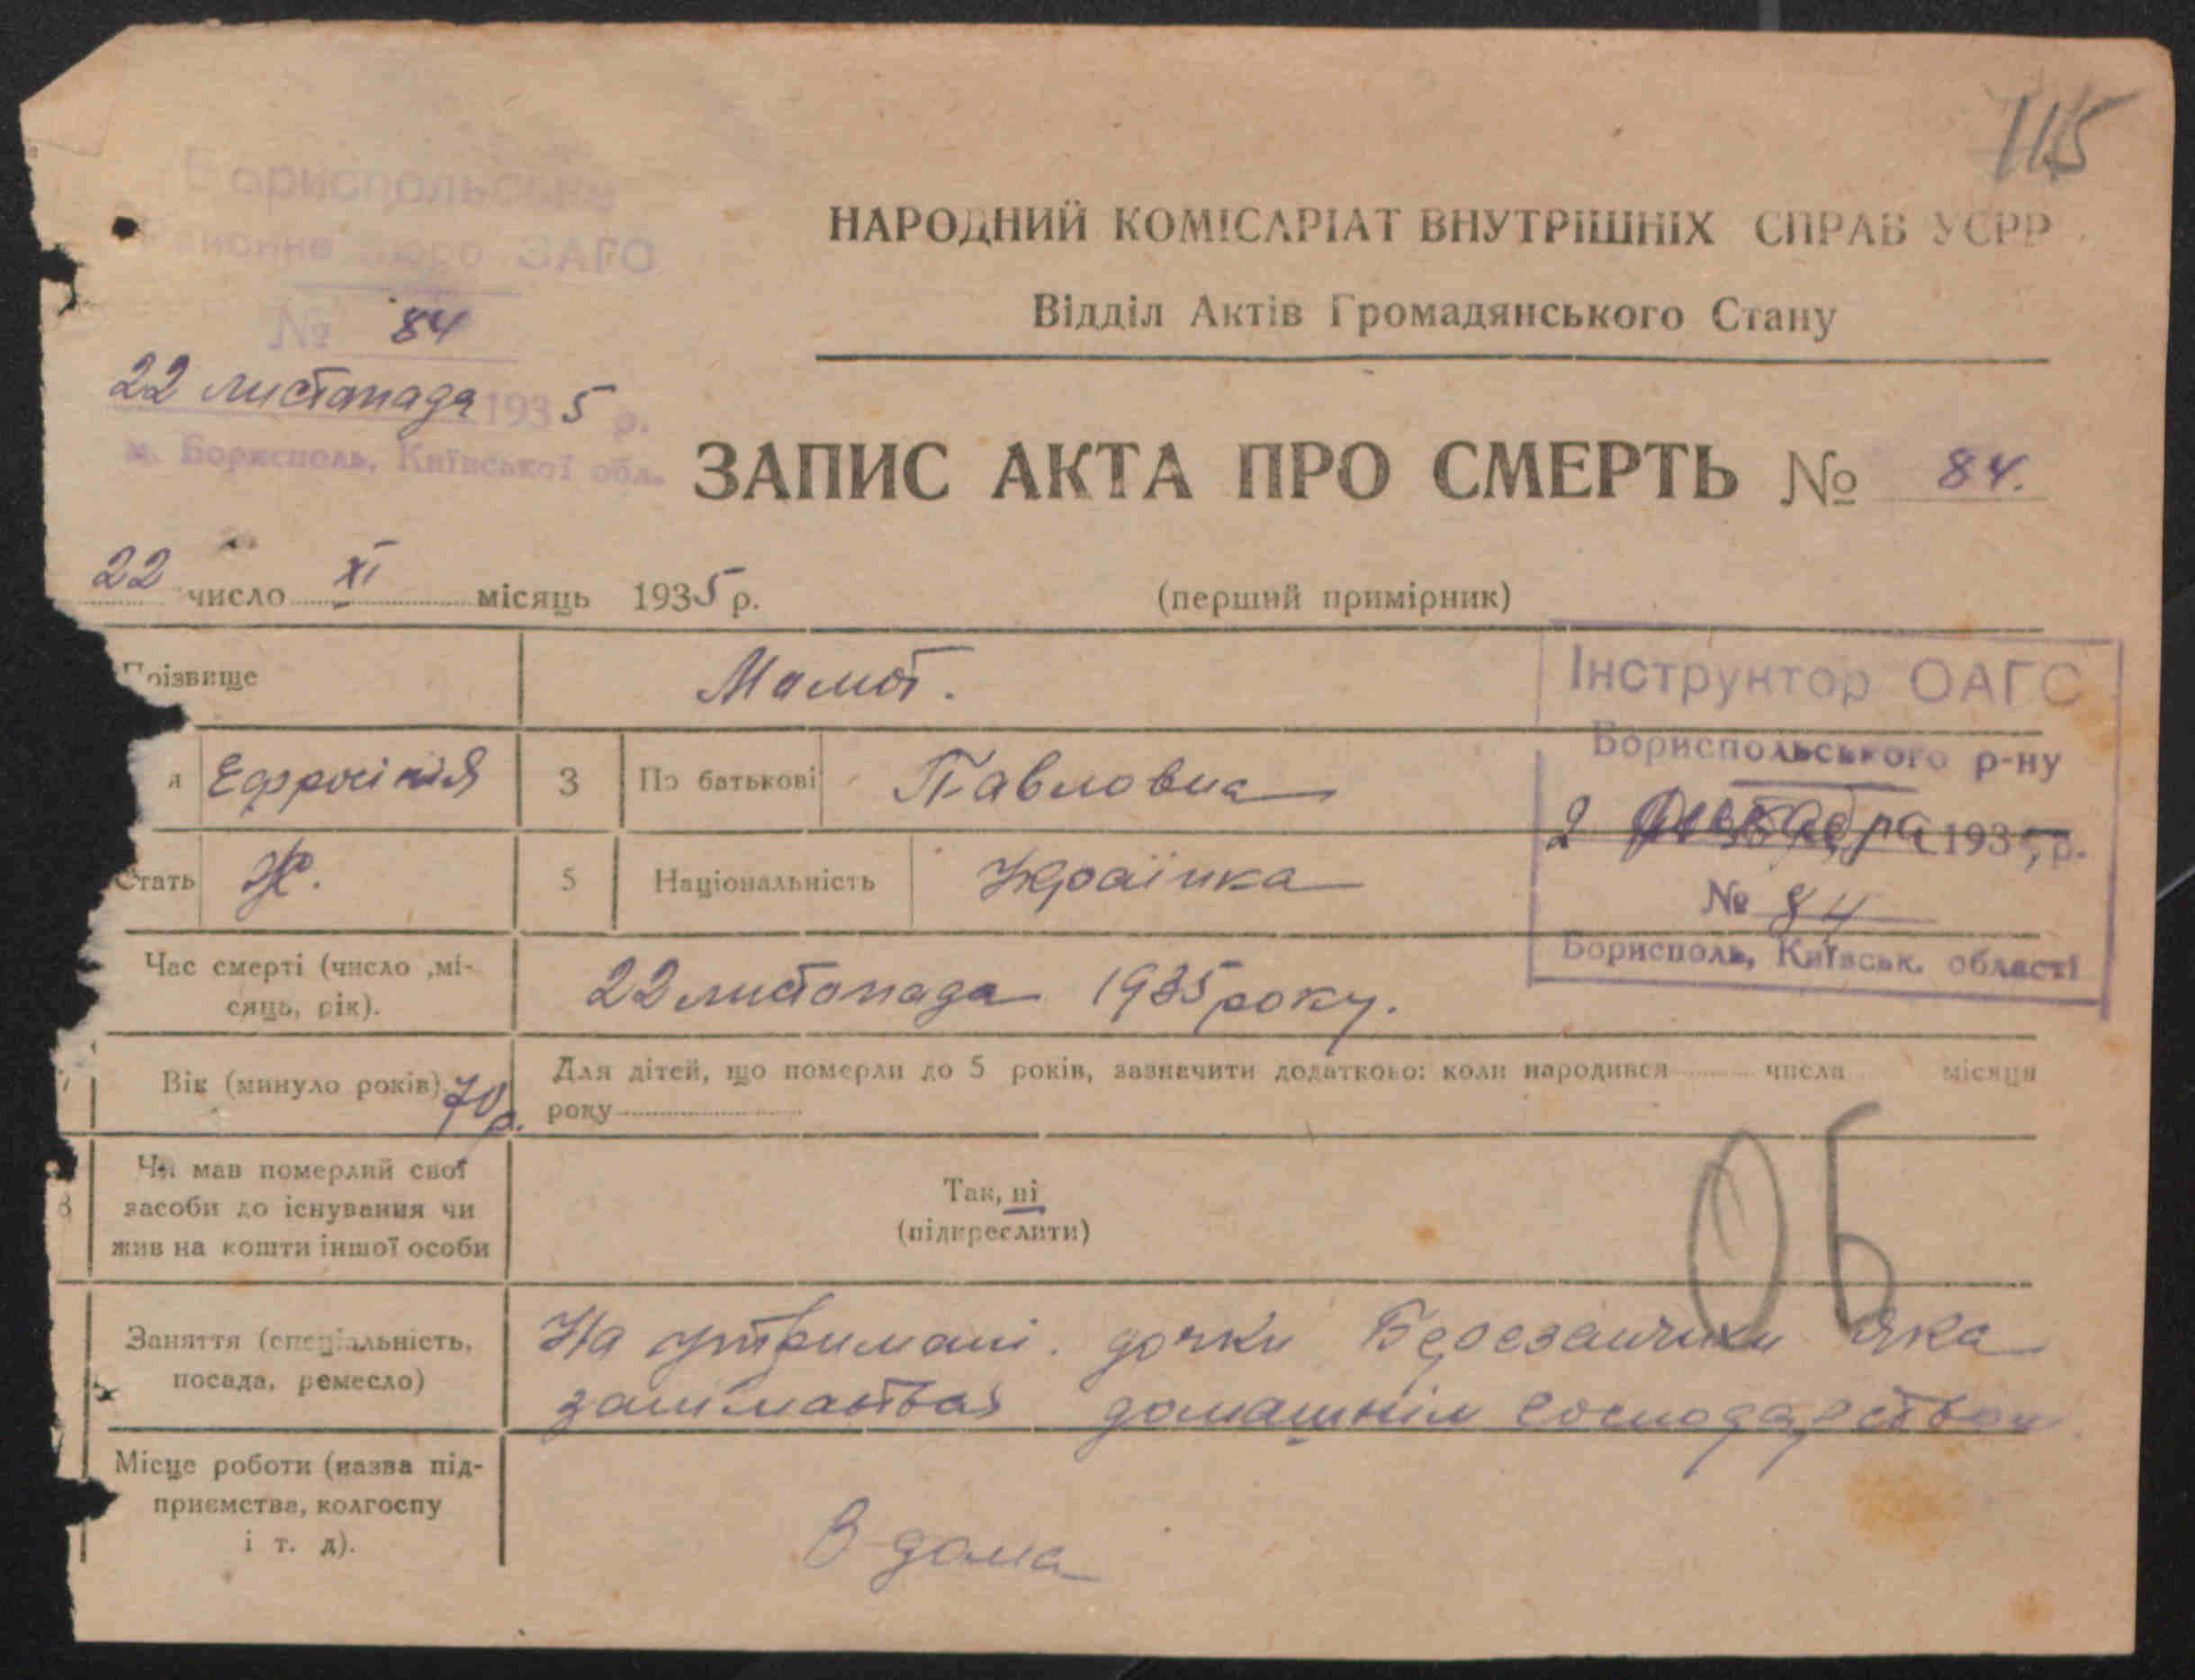 115
Бориспольське
ионне бюро ЗАГС
№ 84
22 листопада 1935 р.
м. Борисполь, Київської обл.
НАРОДНИЙ КОМІСАРІАТ ВНУТРІШНІХ СПРАВ УСРР
Відділ Актів Громадянського Стану
ЗАПИС АКТА ПРО СМЕРТЬ № 84.
22 число XI місяць 1935 р. (перший примірник)
оізвище Мамот.
Інструктор ОАГС
Бориспольського р-ну
2 1935 р.
№ 84
Борисполь, Київськ. області
я Ефросінія 3 По батькові Павловна
Стать Ж. 5 Національність Українка
Час смерті (число ,мі-
сяць, рік). 22 листопада 1935 року.
7 Вік (минуло років) 70 р. Для дітей, що померли до 5 років, зазначити додатково: коли народився числа місяця
року
8 Чи мав померлий свої
засоби до існування чи
жив на кошти іншої особи
Так, ні
(підкреслити)
ОБ
Заняття (спеціальність,
посада, ремесло)
На утримані. дочки Березанчихи яка
займаэться домашнім господарством
Місце роботи (назва під-
приємства, колгоспу
і т. д).
В дома